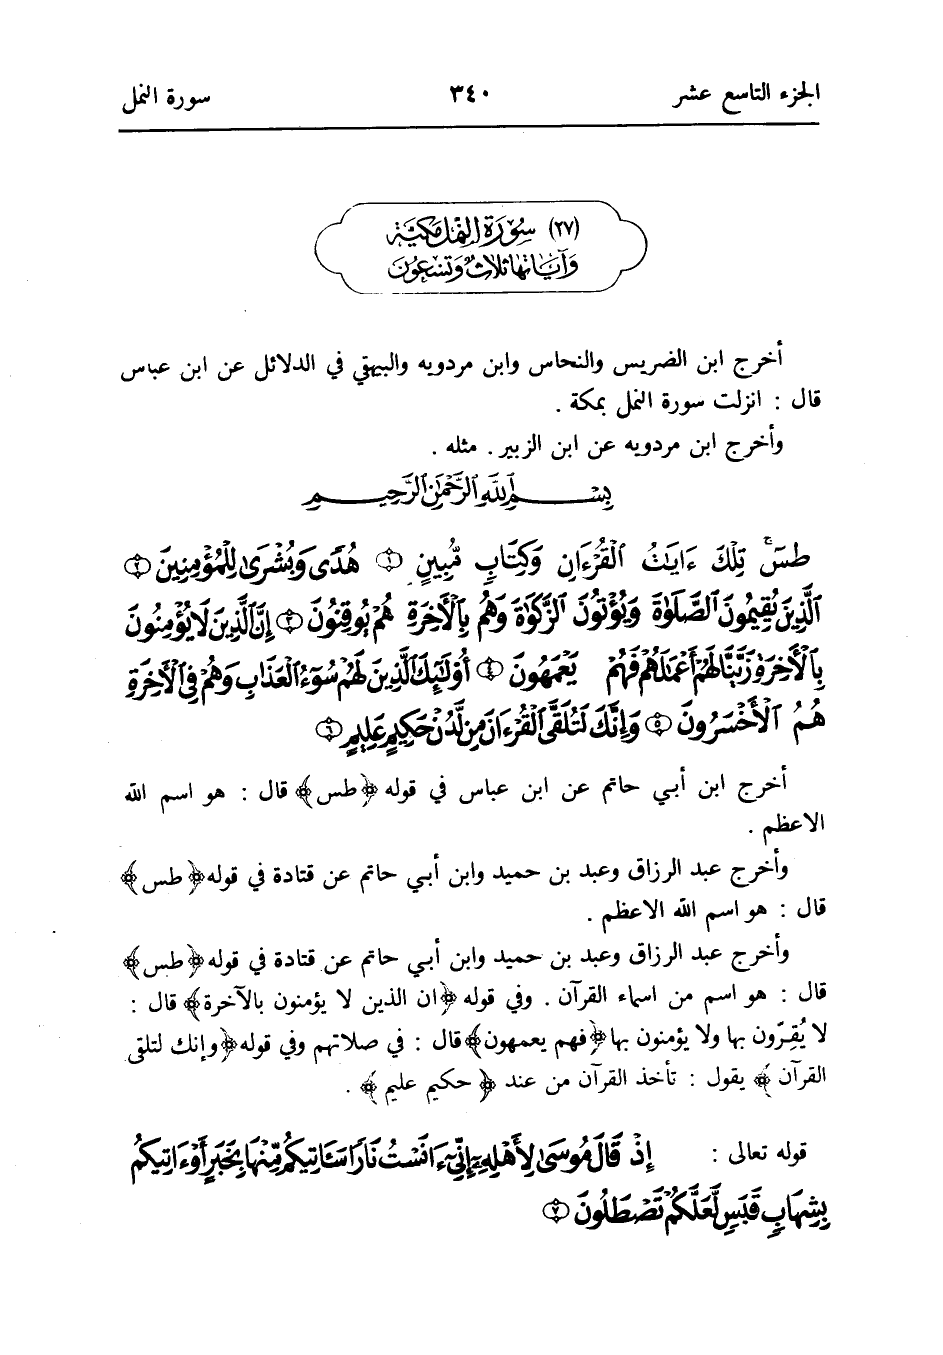 الجزء التاسع عشر ٣٤٠ سورة النمل
(٢٧) سُوْرَة النَّمل مَكيَّة
وَآيَاتهَا ثلاث وَتسْعُون
أخرج ابن الضريس والنحاس وابن مردويه والبيهقي في الدلائل عن ابن عباس
قال : انزلت سورة النمل بمكة .
وأخرج ابن مردويه عن ابن الزبير . مثله .
بِسْمِ اللَّهِ الرَّحْمَٰنِ الرَّحِيمِ
طسٓ تِلْكَ ءَايَٰتُ ٱلْقُرْءَانِ وَكِتَابٍ مُّبِينٍ ۝١ هُدًى وَبُشْرَىٰ لِلْمُؤْمِنِينَ ۝٢
ٱلَّذِينَ يُقِيمُونَ ٱلصَّلَوٰةَ وَيُؤْتُونَ ٱلزَّكَوٰةَ وَهُم بِٱلْأَخِرَةِ هُمْ يُوقِنُونَ ۝٣ إِنَّ ٱلَّذِينَ لَا يُؤْمِنُونَ
بِٱلْأَخِرَةِ زَيَّنَّا لَهُمْ أَعْمَٰلَهُمْ فَهُمْ يَعْمَهُونَ ۝٤ أُوْلَٰٓئِكَ ٱلَّذِينَ لَهُمْ سُوٓءُ ٱلْعَذَابِ وَهُمْ فِي ٱلْأَخِرَةِ
هُمُ ٱلْأَخْسَرُونَ ۝٥ وَإِنَّكَ لَتُلَقَّى ٱلْقُرْءَانَ مِن لَّدُنْ حَكِيمٍ عَلِيمٍ ۝٦
أخرج ابن أبي حاتم عن ابن عباس في قوله ﴿طس﴾ قال : هو اسم الله
الاعظم .
وأخرج عبد الرزاق وعبد بن حميد وابن أبي حاتم عن قتادة في قوله ﴿طس﴾
قال : هو اسم الله الاعظم .
وأخرج عبد الرزاق وعبد بن حميد وابن أبي حاتم عن قتادة في قوله ﴿طس﴾
قال : هو اسم من اسماء القرآن . وفي قوله ﴿ان الذين لا يؤمنون بالآخرة﴾ قال :
لا يُقِرّون بها ولا يؤمنون بها ﴿فهم يعمهون﴾ قال : في صلاتهم وفي قوله ﴿وإنك لتلقى
القرآن﴾ يقول : تأخذ القرآن من عند ﴿حكيم عليم﴾ .
قوله تعالى : إِذْ قَالَ مُوسَىٰ لِأَهْلِهِۦٓ إِنِّيٓ ءَانَسْتُ نَارًا سَـَٔاتِيكُم مِّنْهَا بِخَبَرٍ أَوْ ءَاتِيكُم
بِشِهَابٍ قَبَسٍ لَّعَلَّكُمْ تَصْطَلُونَ ۝٧